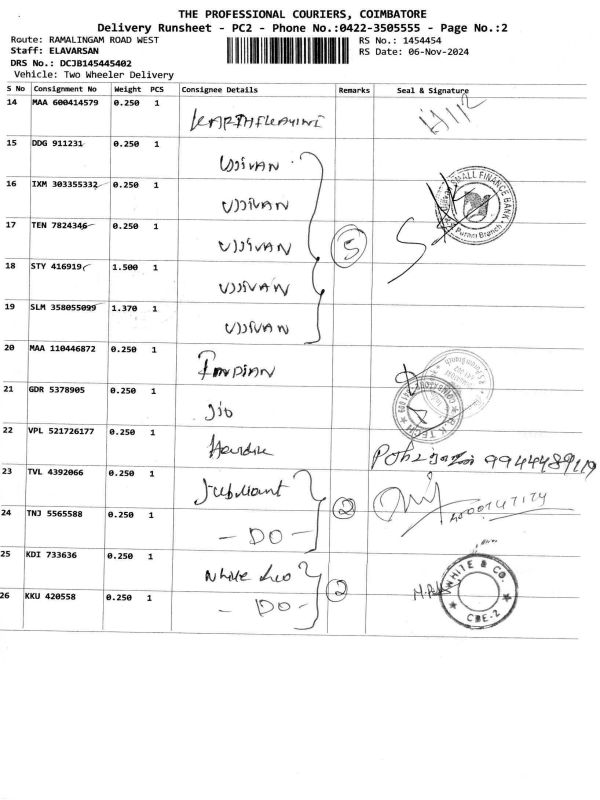 THE PROFESSIONAL COURIERS, COIMBATORE
Delivery Runsheet - PC2 - Phone No.:0422-3505555 - Page No.:2
Route: RAMALINGAM ROAD WEST
RS No.: 1454454
Staff: ELAVARSAN
RS Date: 06-Nov-2024
DRS No.: DCJB145445402
Vehicle: Two Wheeler Delivery
S No Consignment No Weight PCS Consignee Details Remarks Seal & Signature
14 MAA 600414579 0.250 1
15 DDG 911231 0.250 1 UJJIVAN
16 IXM 303355332 0.250 1 UJJIVAN
17 TEN 7824346 0.250 1 UJJIVAN 5
18 STY 416919 1.500 1 UJJIVAN
19 SLM 358055099 1.370 1 UJJIVAN
SMALL FINANCE BANK
20 MAA 110446872 0.250 1 INDIAN
21 GDR 5378905 0.250 1 Jio
22 VPL 521726177 0.250 1
23 TVL 4392066 0.250 1 Jubilant 2
24 TNJ 5565588 0.250 1 - DO -
25 KDI 733636 0.250 1 White 2
26 KKU 420558 0.250 1 - DO -
WHITE & CO.
CBE-2